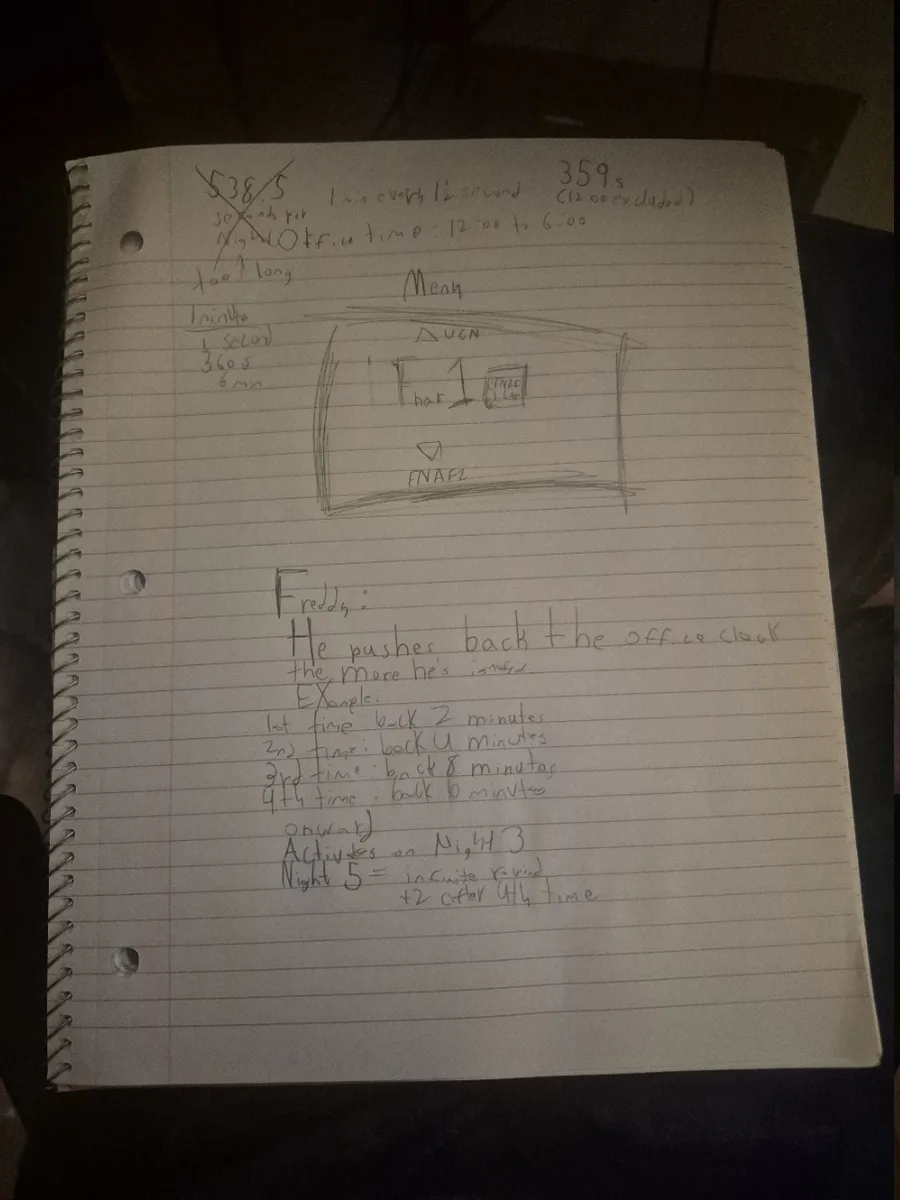 538.5
seconds per
Night
too ↑ long
1 min every 1½ second
359s
(12:00 excluded)
Office time: 12:00 to 6:00
1 minute
1 second
360s
6 min
Menu
△ UCN
1
FNAF
▽
FNAF2
Freddy:
He pushes back the office clock
the more he's
Example:
1st time: back 2 minutes
2nd time: back 4 minutes
3rd time: back 8 minutes
4th time: back 6 minutes
onward
Activates on Night 3
Night 5 =
+2 after 4th time